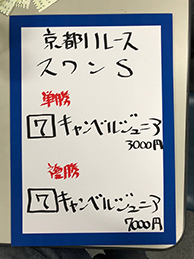 京都11レース
スワンS
単勝
7 キャンベルジュニア
3000円
複勝
7 キャンベルジュニア
7000円